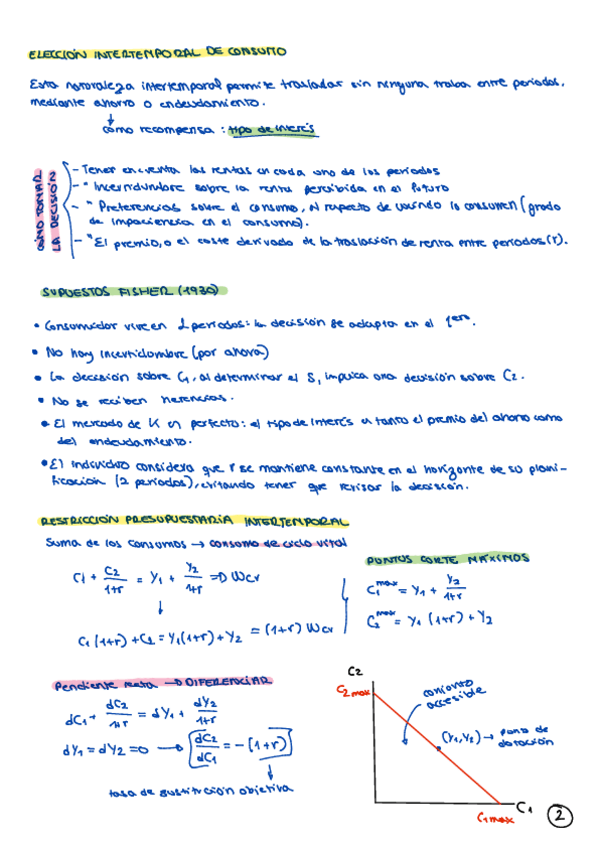 ELECCIÓN INTERTEMPORAL DE CONSUMO
Esta naturaleza intertemporal permite trasladar sin ninguna traba entre periodos,
mediante ahorro o endeudamiento.
↓
como recompensa: tipo de interés
CÓMO TOMAR
LA DECISIÓN
- Tener en cuenta las rentas en cada uno de los periodos
- " Incertidumbre sobre la renta percibida en el futuro
- " Preferencias sobre el consumo, al respecto de cuándo lo consumen (grado
de impaciencia en el consumo).
- " El premio, o el coste derivado de la traslación de renta entre periodos (r).
SUPUESTOS FISHER (1930)
• Consumidor vive en 2 periodos: la decisión se adapta en el 1ero.
• No hay incertidumbre (por ahora)
• La decisión sobre C1, al determinar el S, implica una decisión sobre C2.
• No se reciben herencias.
• El mercado de K es perfecto: el tipo de interés es tanto el premio del ahorro como
del endeudamiento.
• El individuo considera que r se mantiene constante en el horizonte de su plani-
ficación (2 periodos), evitando tener que revisar la decisión.
RESTRICCIÓN PRESUPUESTARIA INTERTEMPORAL
Suma de los consumos → consumo de ciclo vital
C1 + C2/1+r = Y1 + Y2/1+r => Wcv
↓
C1 (1+r) + C2 = Y1(1+r) + Y2 = (1+r) Wcv
PUNTOS CORTE MÁXIMOS
C1max = Y1 + Y2/1+r
C2max = Y1 (1+r) + Y2
Pendiente recta → DIFERENCIAR
dC1 + dC2/1+r = dY1 + dY2/1+r
dY1 = dY2 = 0 → dC2/dC1 = -(1+r)
↓
tasa de sustitución objetiva
C2
C2max
conjunto
accesible
(Y1, Y2) → punto de
dotación
C1max
C1
2